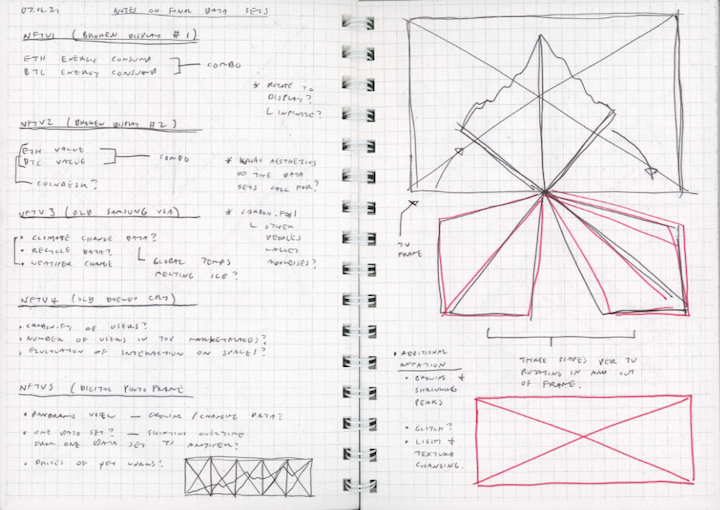 07.06.21 NOTES ON FINAL DATA SETS
NFTV1 (BROKEN DISPLAY #1)
ETH ENERGY CONSUMP
BTC ENERGY CONSUMP
COMBO
* ROTATE TO
DISPLAY?
L INFINITE?
NFTV2 (BROKEN DISPLAY #2)
ETH VALUE
BTC VALUE
COMBO
COINDESK?
* WHAT AESTHETICS
DO THE DATA
SETS CALL FOR?
NFTV3 (OLD SAMSUNG VGA)
• CLIMATE CHANGE DATA?
• RECYCLE DATA?
• WEATHER CHANGE
GLOBAL TEMPS
MELTING ICE?
* CARBON.FYI
L OTHER
PEOPLES
WALLET
ADDRESSES?
NFTV4 (OLD DAEWOO CRT)
• OF USERS?
• NUMBER OF USERS IN TOP MARKETPLACES?
• FLUCTUATION OF INTERACTION ON SPACES?
NFTV5 (DIGITAL PHOTO FRAME
• PANORAMIC VIEW — GROWING / CHANGING DATA?
• ONE DATA SET? — SHIFTING OVERTIME
FROM ONE DATA SET TO ANOTHER?
• PRICES OF MY WORKS?
TV
FRAME
THREE SLIDES PER TV
ROTATING IN AND OUT
OF FRAME.
• ADDITIONAL
• GROWING &
SHRINKING
PEAKS
• GLITCH?
• LIGHT &
TEXTURE
CHANGING.